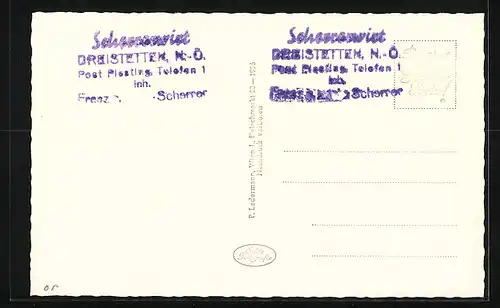 Scherrerwirt
DREISTETTEN, N.-Ö.
Post Piesting, Telefon 1
Inh.
Franz Scherrer
Scherrerwirt
DREISTETTEN, N.-Ö.
Post Piesting, Telefon 1
Inh.
Scherrer
P. Ledermann, Wien I, Fleischmarkt 20 — 1936
Nachdruck verboten